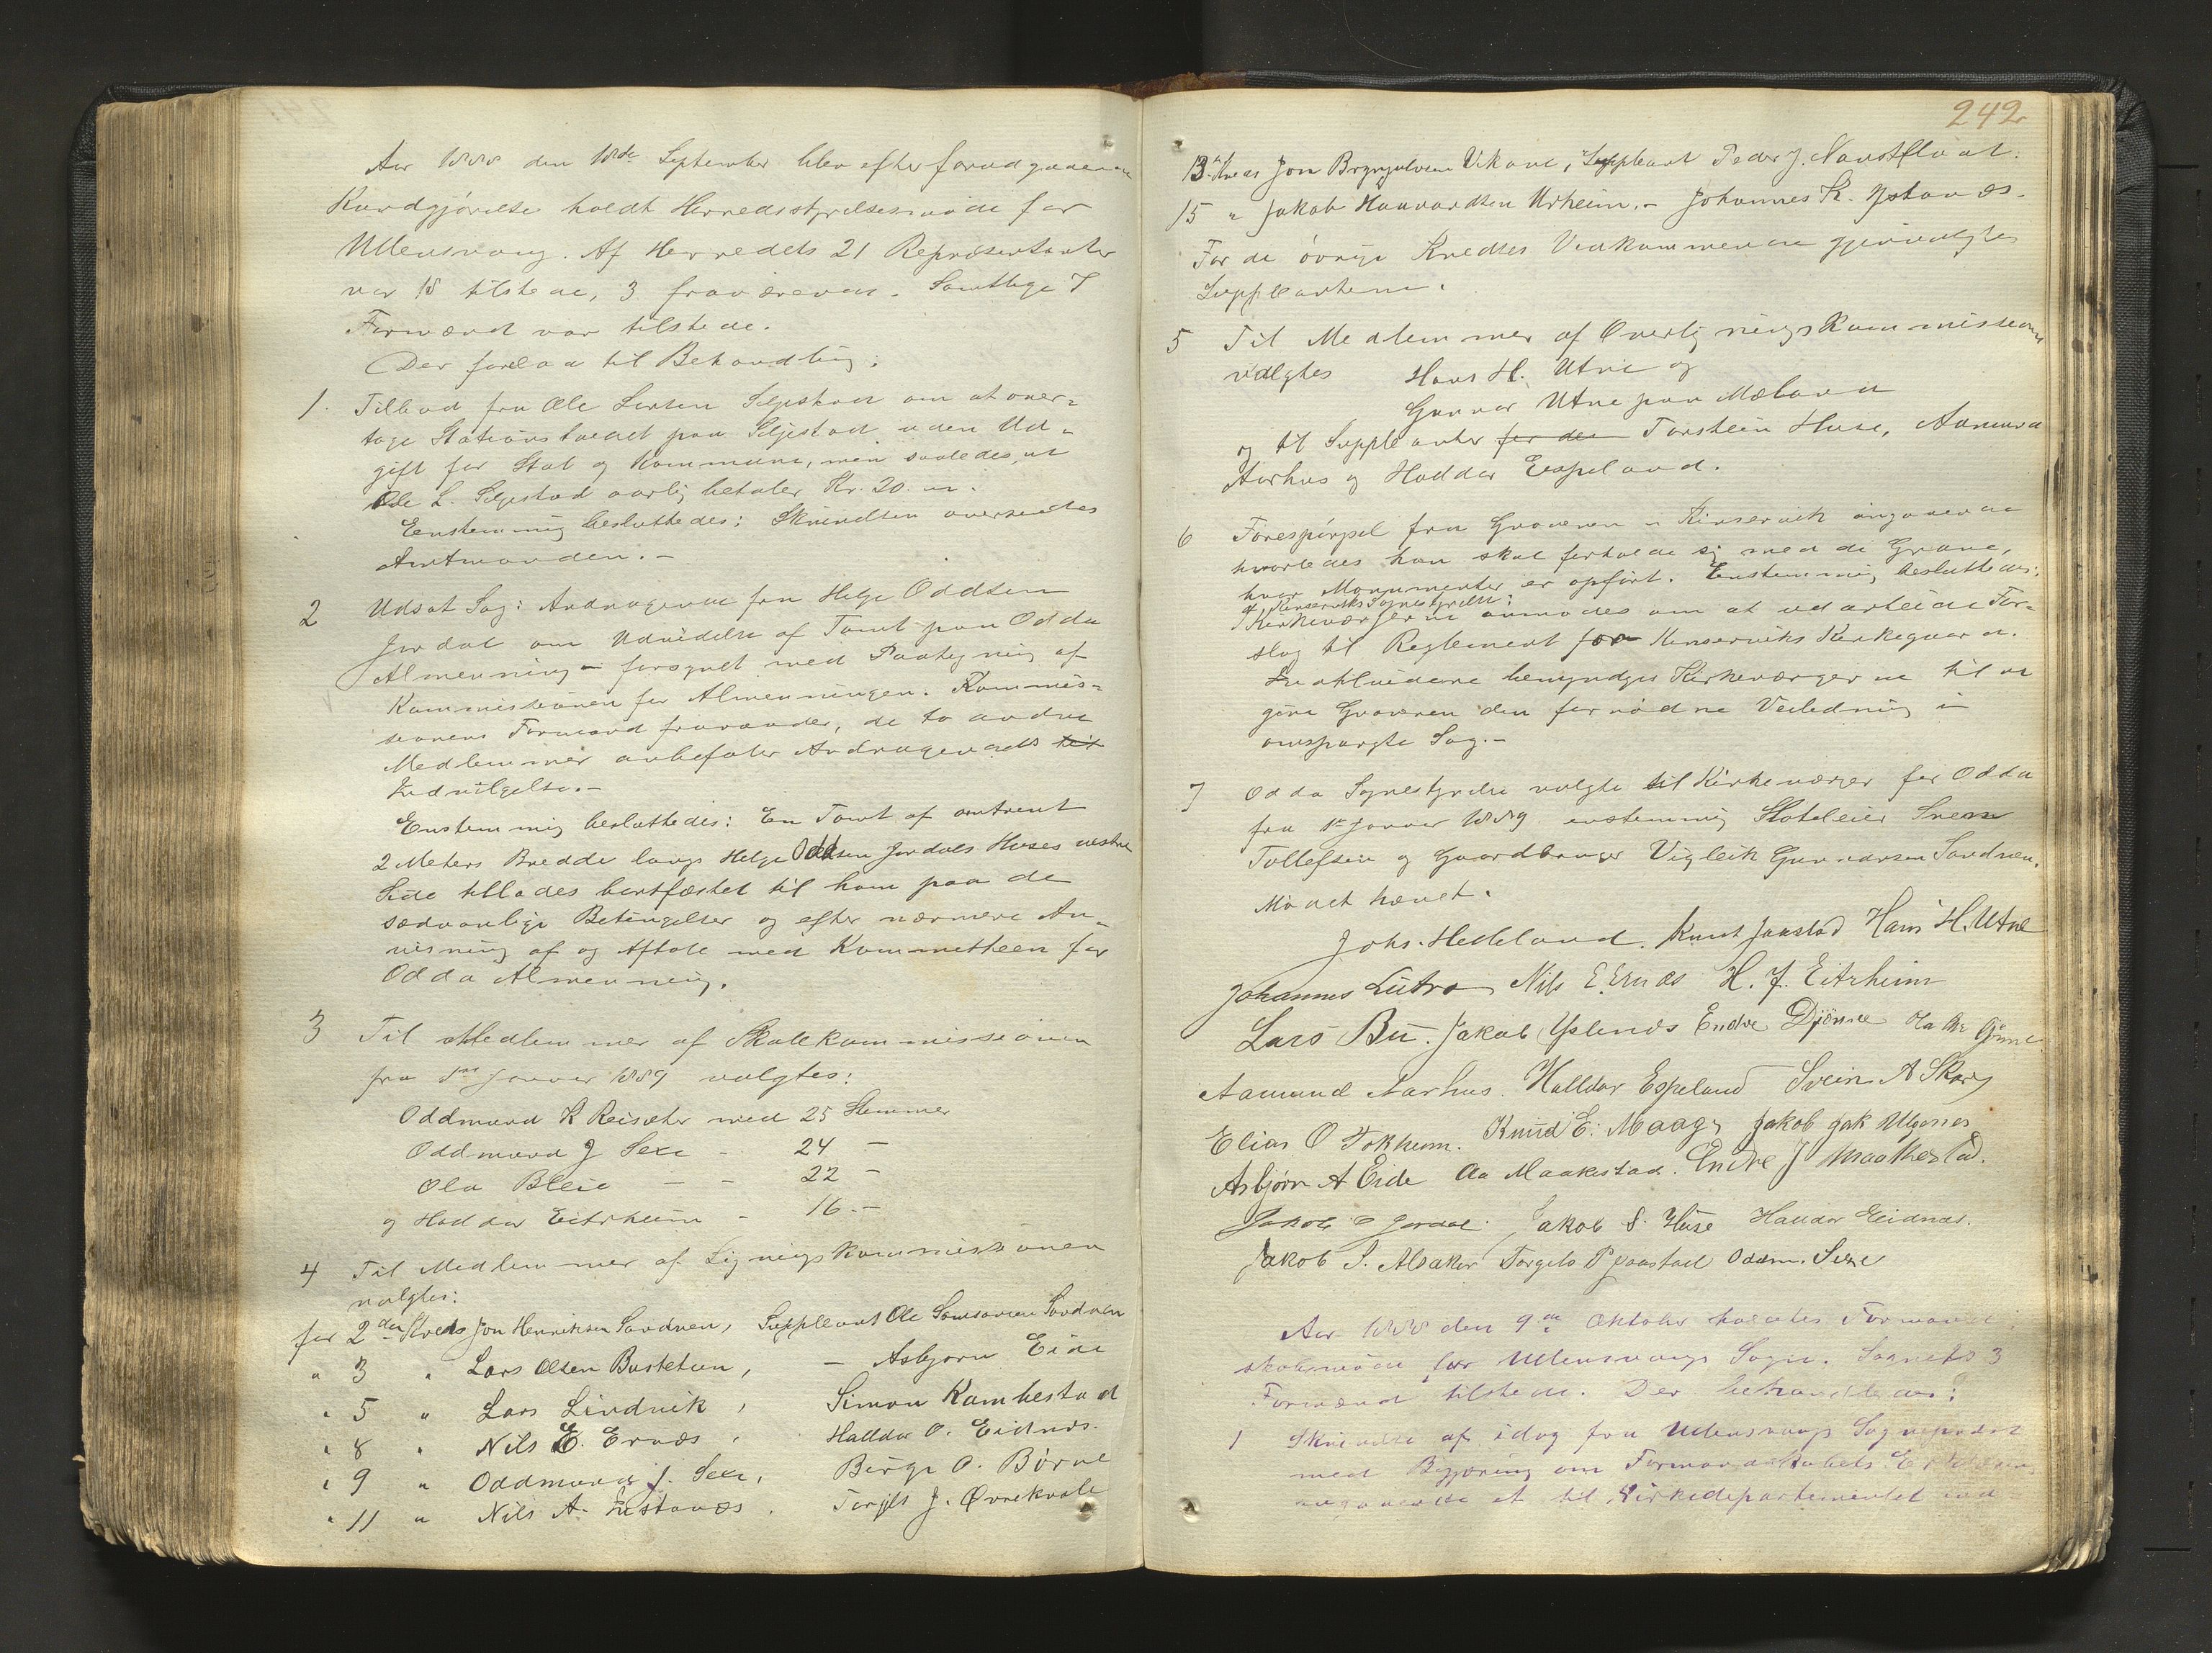 Aar 1888 den 18de September blev efter forudgaaende
Kundgjörelse holdt Herredsstyrelsesmøde for
Ullensvang. Af Herredets 21 Repræsentanter
var 18 tilstede, 3 fraværende. Samtlige 7
Formænd var tilstede.
Der forelaa til Behandling:
1. Tilbud fra Ole Larsen Seljestad om at over=
tage Stationsholdet paa Seljestad uden Ud=
gift for Stat og Kommune, men saaledes, at
Ole L. Seljestad aarlig betaler Kr. 20.
Eenstemmig besluttedes: Skrivelsen oversendtes
Amtmanden. -
2 Udsat Sag: Andragende fra Helge Oddsen
Jordal om Udvidelse af Tomt paa Odda
Almenning - forsynet med Paategning af
Kommissionen for Almenningen. Kommis=
sionens Formand fraraader, de to andre
Medlemmer anbefaler Andragendets til
Indvilgelse. -
Enstemmig besluttedes: En Tomt af omtrent
2 Meters Bredde langs Helge Oddsen Jordals Huses vestre
Side tillades bortfæstet til ham paa de
sædvanlige Betingelser og efter nærmere An=
visning af og Aftale med Kommitteen for
Odda Almenning.
3 Til Medlemmer af Skolekommissionen
fra 1ste Januar 1889 valgtes:
Oddmund K Reisæter med 25 Stemmer
Oddmund J Sexe - 24 -
Ola Bleie - - 22 -
og Haldor Eitrheim - 16. -
4 Til Medlemmer af Ligningskommissionen
valgtes:
for 2den Kreds Jon Henriksen Sandven, Suppleant Ole Samsonsen Sandven
" 3 " Lars Olsen Bustetun, - Asbjørn Eide
" 5 " Lars Lindvik, Simon Kambestad
" 8 " Nils E. Ernæs, Halldor O. Eidnæs.
" 9 " Oddmund J. Sexe, Børge O. Börve
" 11 " Nils A. Istanæs. Torjils J. Øvrekvale
242
13. Kreds Jon Brynjulvsen Vikane, Suppleant Peder J. Naustflaat.
15 " Jakob Haavardsen Urheim. - Johannes K. Ystanæs.
For de övrige Kredses Vedkommende gjenvalgtes
Suppleanterne.
5 Til Medlemmer af Overligningskommissionen
valgtes Hans H. Utne og
Gunnar Utne paa Mæland
og til Suppleanter for den Torstein Huse, Aamund
Aarhus og Haldor Espeland.
6 Forespørgsel fra Graveren i Kinservik angaaende
hvorledes han skal forholde sig med de Grave,
hvor Monumenter er opført. Enstemmig besluttedes:
af Kinserviks Sognestyrelse:
Kirkeværgerne anmodes om at udarbeide For=
slag til Reglement for Kinserviks Kirkegaard.
Indtilvidere bemyndiges Kirkeværgerne til at
give Graveren den fornødne Veiledning i
omspurgte Sag. -
7 Odda Sognestyrelse valgte til Kirkeværger for Odda
fra 1ste Januar 1889 enstemmig Hoteleier Svein
Tollefsen og Gaardbruger Vigleik Gunnarsen Sandven.
Mødet hævet.
Johs. Helleland. Knut Jaastad Hans H. Utne
Johannes Lutro Nils E Ernæs H. J. Eitrheim
Lars Bu. Jakob Yslenæs Endre Djönne
Aamund Aarhus. Halldor Espeland Svein A Skare
Elias O Tokheim. Knud E. Maage Jakob Jak
Asbjørn A Eide Aa Maakestad. Endre J Maakestad.
Jakob O Jordal. Jakob S. Huse Haldor Eidnæs.
Jakob J. Alsaker Torgils P Jaastad Oddm. Sexe
Aar 1888 den 9de Oktober holdtes Formand
skabsmøde for Ullensvangs Sogn. Sognets 3
Formænd tilstede. Der behandledes:
1 Skrivelse af idag fra Ullensvangs Sognepræst
med Begjæring om Formandskabets Erklæring
angaaende et til Kirkedepartementet ind